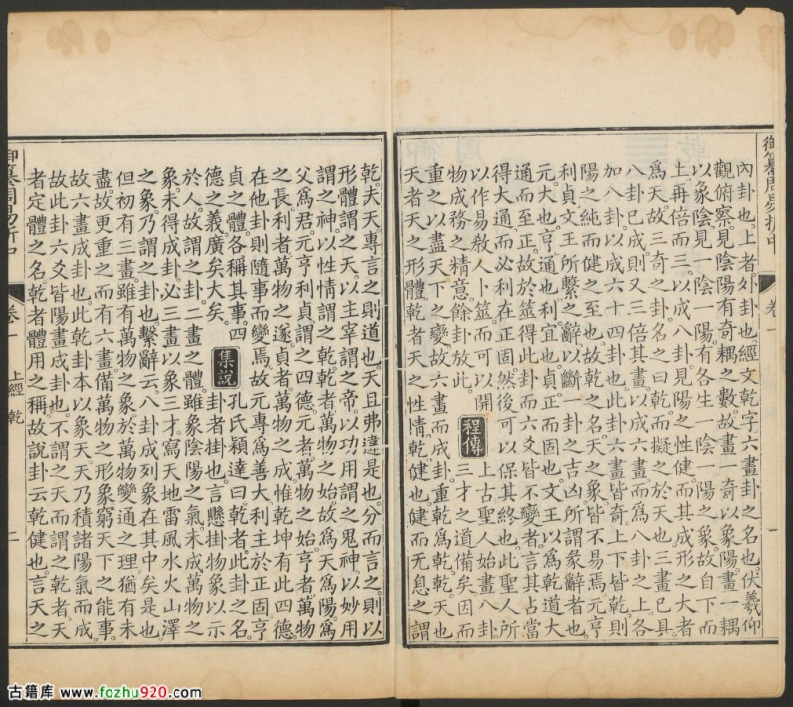 御纂周易折中 卷一 一
內卦也。上者外卦也。經文乾字六畫卦之名也。伏羲仰
觀俯察。見陰陽有奇耦之數。故畫一奇以象陽。畫一耦
以象陰。見一陰一陽有各生一陰一陽之象。故自下而
上再倍而三。以成八卦。見陽之性健。而其成形之大者
爲天。故三奇之卦。名之曰乾。而擬之於天也。三畫已具。
八卦已成。則又三倍其畫。以成六畫。而爲八卦之上。各
加八卦。以成六十四卦也。此卦六畫皆奇。上下皆乾。則
陽之純而健之至也。故乾之名。天之象。皆不易焉。元亨
利貞。文王所繫之辭。以斷一卦之吉凶。所謂彖辭者也。
元。大也。亨。通也。利。宜也。貞。正而固也。文王以爲乾道大
通而至正。故於筮得此卦。而六爻皆不變者。言其占當
得大通。而必利在正固。然後可以保其終也。此聖人所
以作易敎人卜筮。而可以開
物成務之精意。餘卦放此。
程傳
上古聖人始畫八卦。
三才之道備矣。因而
重之以盡天下之變。故六畫而成卦。重乾爲乾。乾天也。
天者天之形體。乾者天之性情。乾健也。健而无息之謂
乾。夫天專言之則道也。天且弗違是也。分而言之。則以
形體謂之天。以主宰謂之帝。以功用謂之鬼神。以妙用
謂之神。以性情謂之乾。乾者萬物之始。故爲天爲陽爲
父爲君。元亨利貞謂之四德。元者萬物之始。亨者萬物
之長。利者萬物之遂。貞者萬物之成。惟乾坤有此四德。
在他卦則隨事而變焉。故元專爲善大。利主於正固。亨
貞之體。各稱其事。四
德之義。廣矣大矣。
集說
孔氏穎達曰。乾者此卦之名。
卦者掛也。言懸掛物象以示
於人。故謂之卦。二畫之體。雖象陰陽之氣。未成萬物之
象。未得成卦。必三畫以象三才。寫天地雷風水火山澤
之象。乃謂之卦也。繫辭云。八卦成列。象在其中矣是也。
但初有三畫。雖有萬物之象。於萬物變通之理。猶有未
盡。故更重之而有六畫。備萬物之形象。窮天下之能事。
故六畫成卦也。此乾卦本以象天。天乃積諸陽氣而成
故此卦六爻皆陽畫成卦也。不謂之天而謂之乾者。天
者定體之名。乾者體用之稱。故說卦云。乾健也。言天之
御纂周易折中 卷一 上經 乾 二
古籍库 www.fozhu920.com